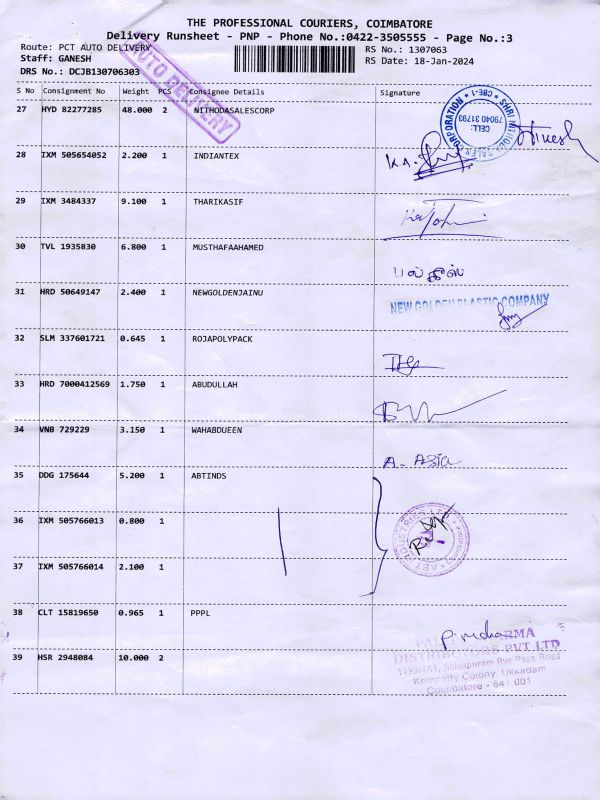 THE PROFESSIONAL COURIERS, COIMBATORE
Delivery Runsheet - PNP - Phone No.:0422-3505555 - Page No.:3
Route: PCT AUTO DELIVERY
RS No.: 1307063
Staff: GANESH
RS Date: 18-Jan-2024
DRS No.: DCJB130706303
AUTO DELIVERY
S No Consignment No Weight PCS Consignee Details Signature
27 HYD 82277285 48.000 2 NITHODASALESCORP
CELL: 79040 31793 CBE-1
28 IXM 505654052 2.200 1 INDIANTEX
29 IXM 3484337 9.100 1 THARIKASIF
30 TVL 1935830 6.800 1 MUSTHAFAAHAMED
31 HRD 50649147 2.400 1 NEWGOLDENJAINU
NEW GOLDEN PLASTIC COMPANY
32 SLM 337601721 0.645 1 ROJAPOLYPACK
33 HRD 7000412569 1.750 1 ABUDULLAH
34 VNB 729229 3.150 1 WAHABDUEEN
A. Asia
35 DDG 175644 5.200 1 ABTINDS
36 IXM 505766013 0.800 1
ABT INDUSTRIES LTD
37 IXM 505766014 2.100 1
38 CLT 15819650 0.965 1 PPPL
DISTRIBUTORS PVT LTD
39 HSR 2948084 10.000 2
1199/4A1, Selvapuram Bye Pass Road
Kempatty Colony, Ukkadam
Coimbatore - 641 001